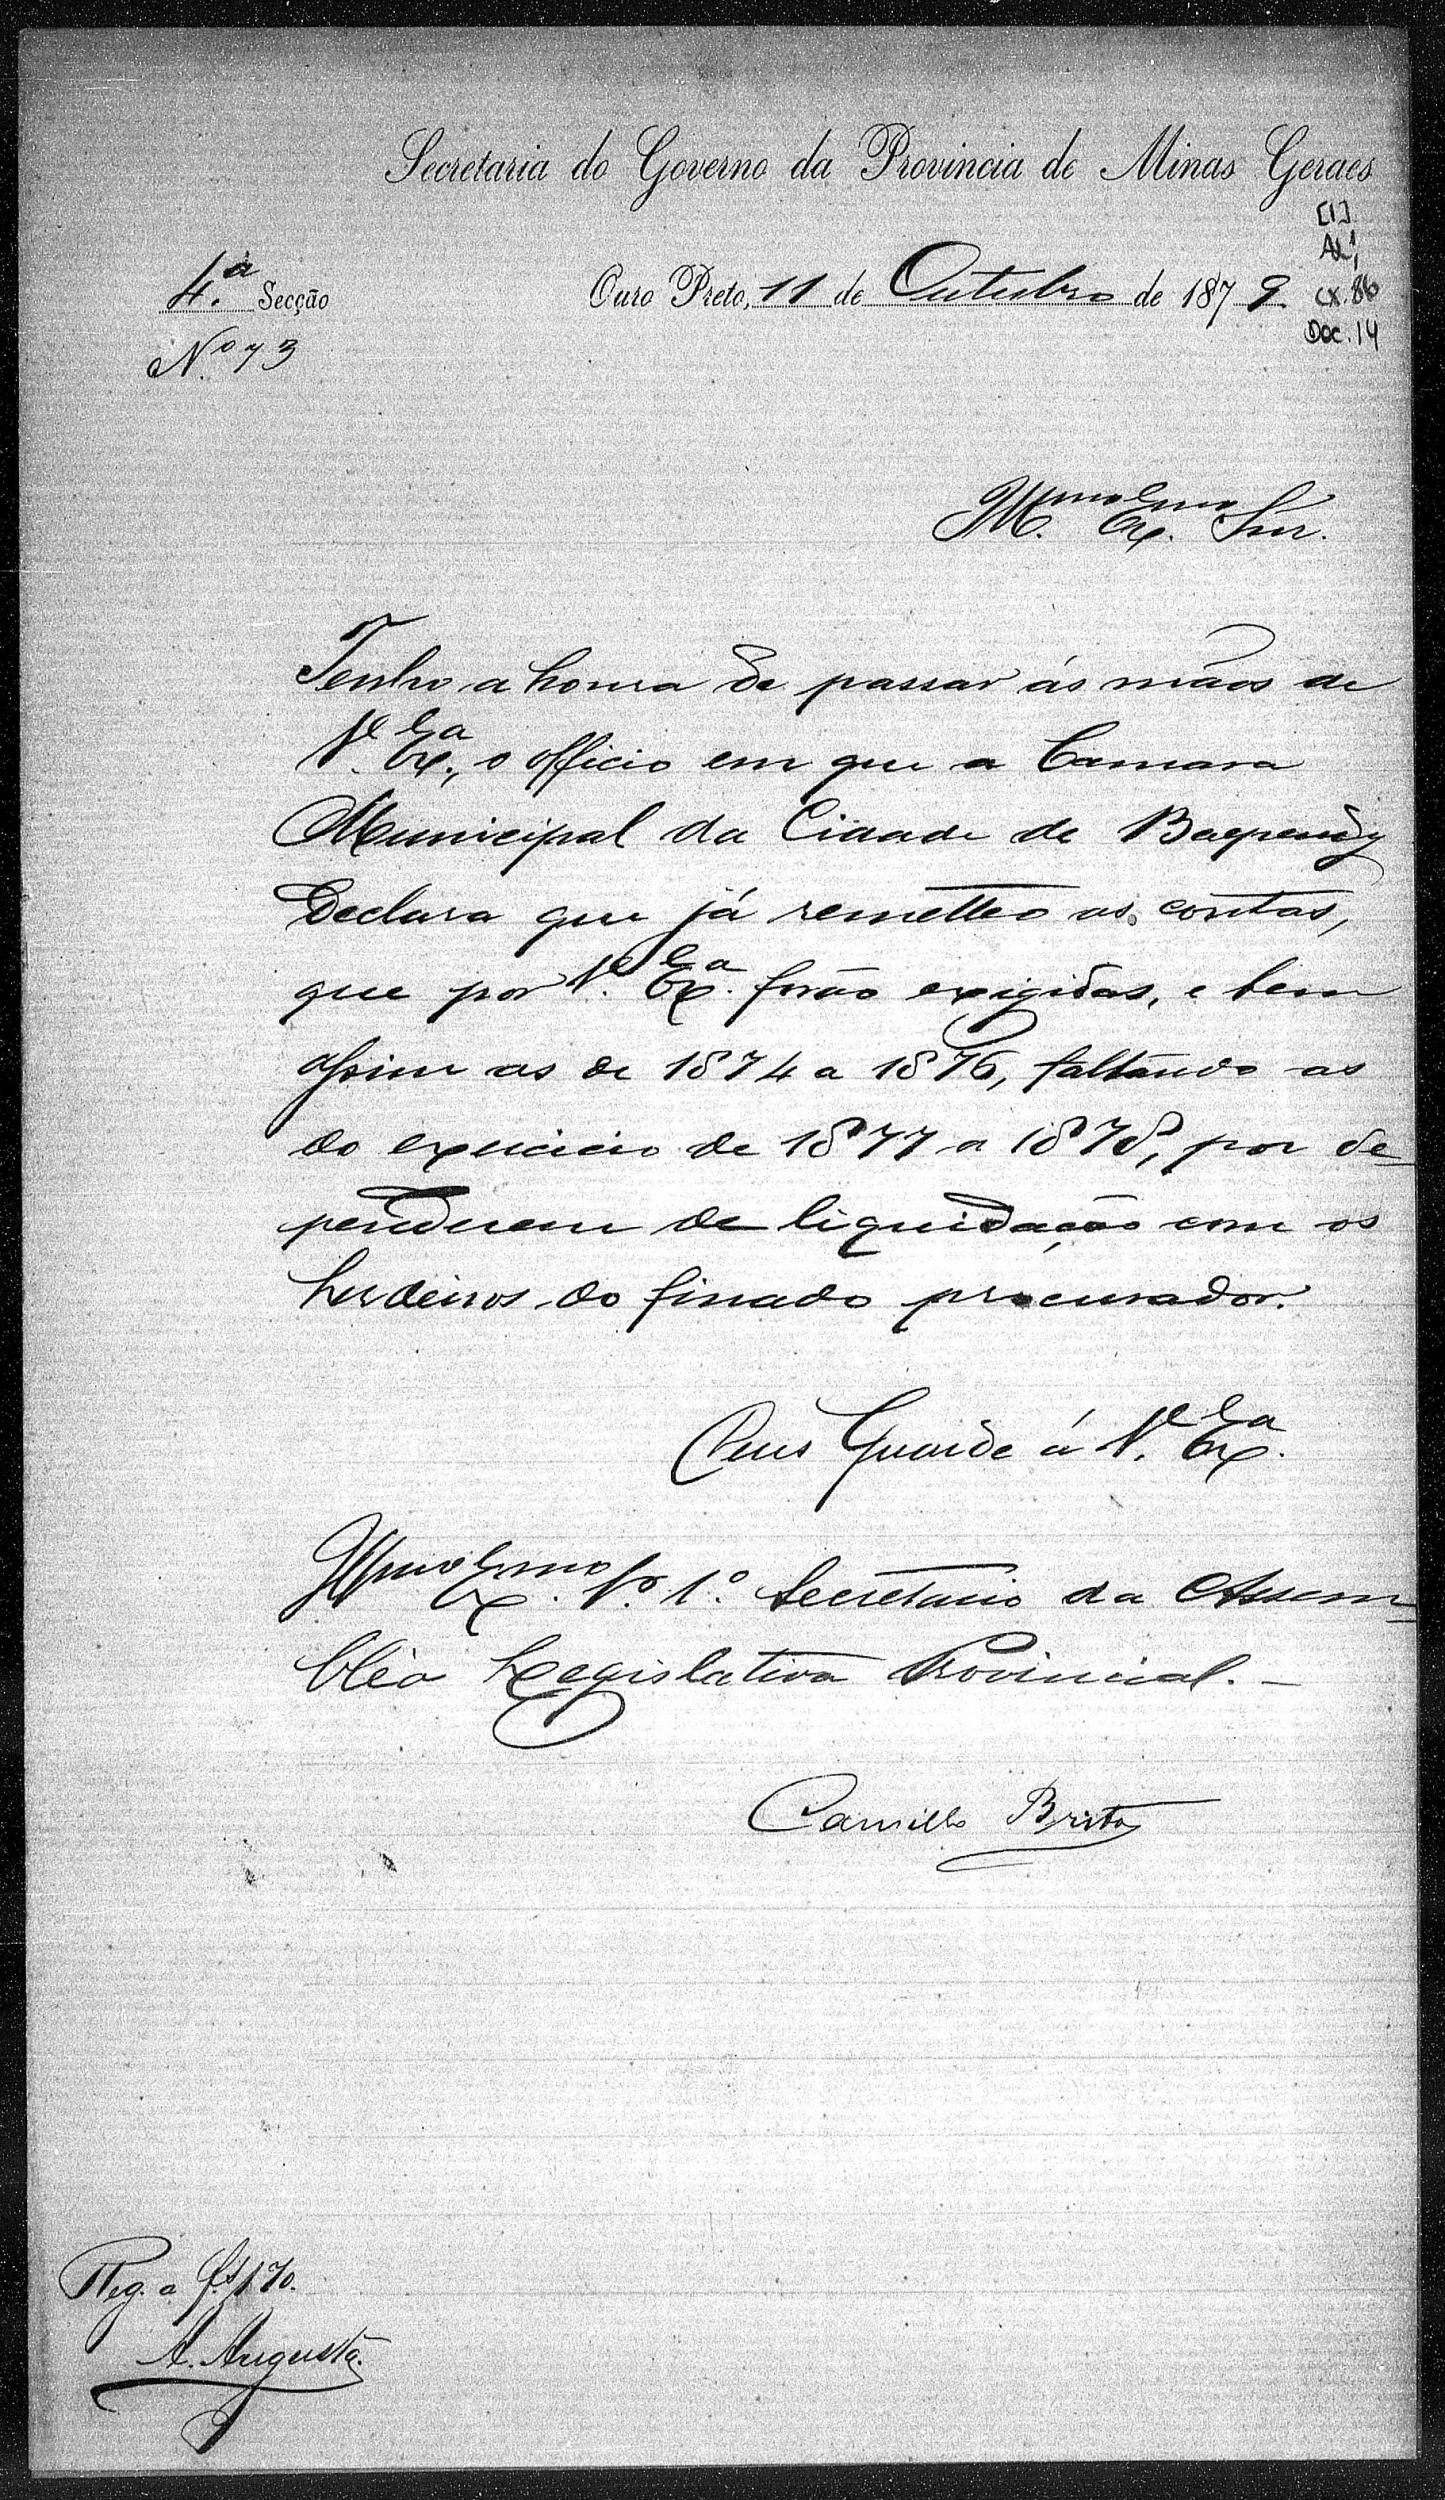 Secretaria do Governo da Provincia de Minas Geraes
[1]
AL1,
cx. 86
Doc. 14
4.ª Secção
Ouro Preto, 11 de Outubro de 1879
N.º 73
Ill.mo Ex.mo Snr.
Tenho a honra de passar ás mãos de
V. Ex.ª, o officio em que a Camara
Municipal da Cidade de Baependy
declara que já remetteo as contas,
que por V. Ex.ª forão exigidas, e bem
assim as de 1874 a 1876, faltando as
do exercicio de 1877 a 1878, por de-
penderem de liquidação com os
herdeiros do finado procurador.
Deus Guarde á V. Ex.ª
Ill.mo Ex.mo Sr. 1.º Secretario da Assem-
bléa Legislativa Provincial.-
Camillo Brito
Reg. a fs 170.
A. Augusto.